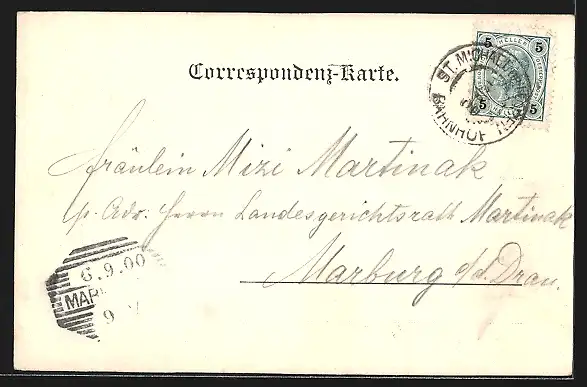 5 HELLER 5
ST. MICHAEL
BAHNHOF
5 5
Correspondenz-Karte.
Fräulein Mizi Martinak
p. Adr. Herrn Landesgerichtsrath Martinak
Marburg a/d. Drau.
6.9.00
MARB
9 V